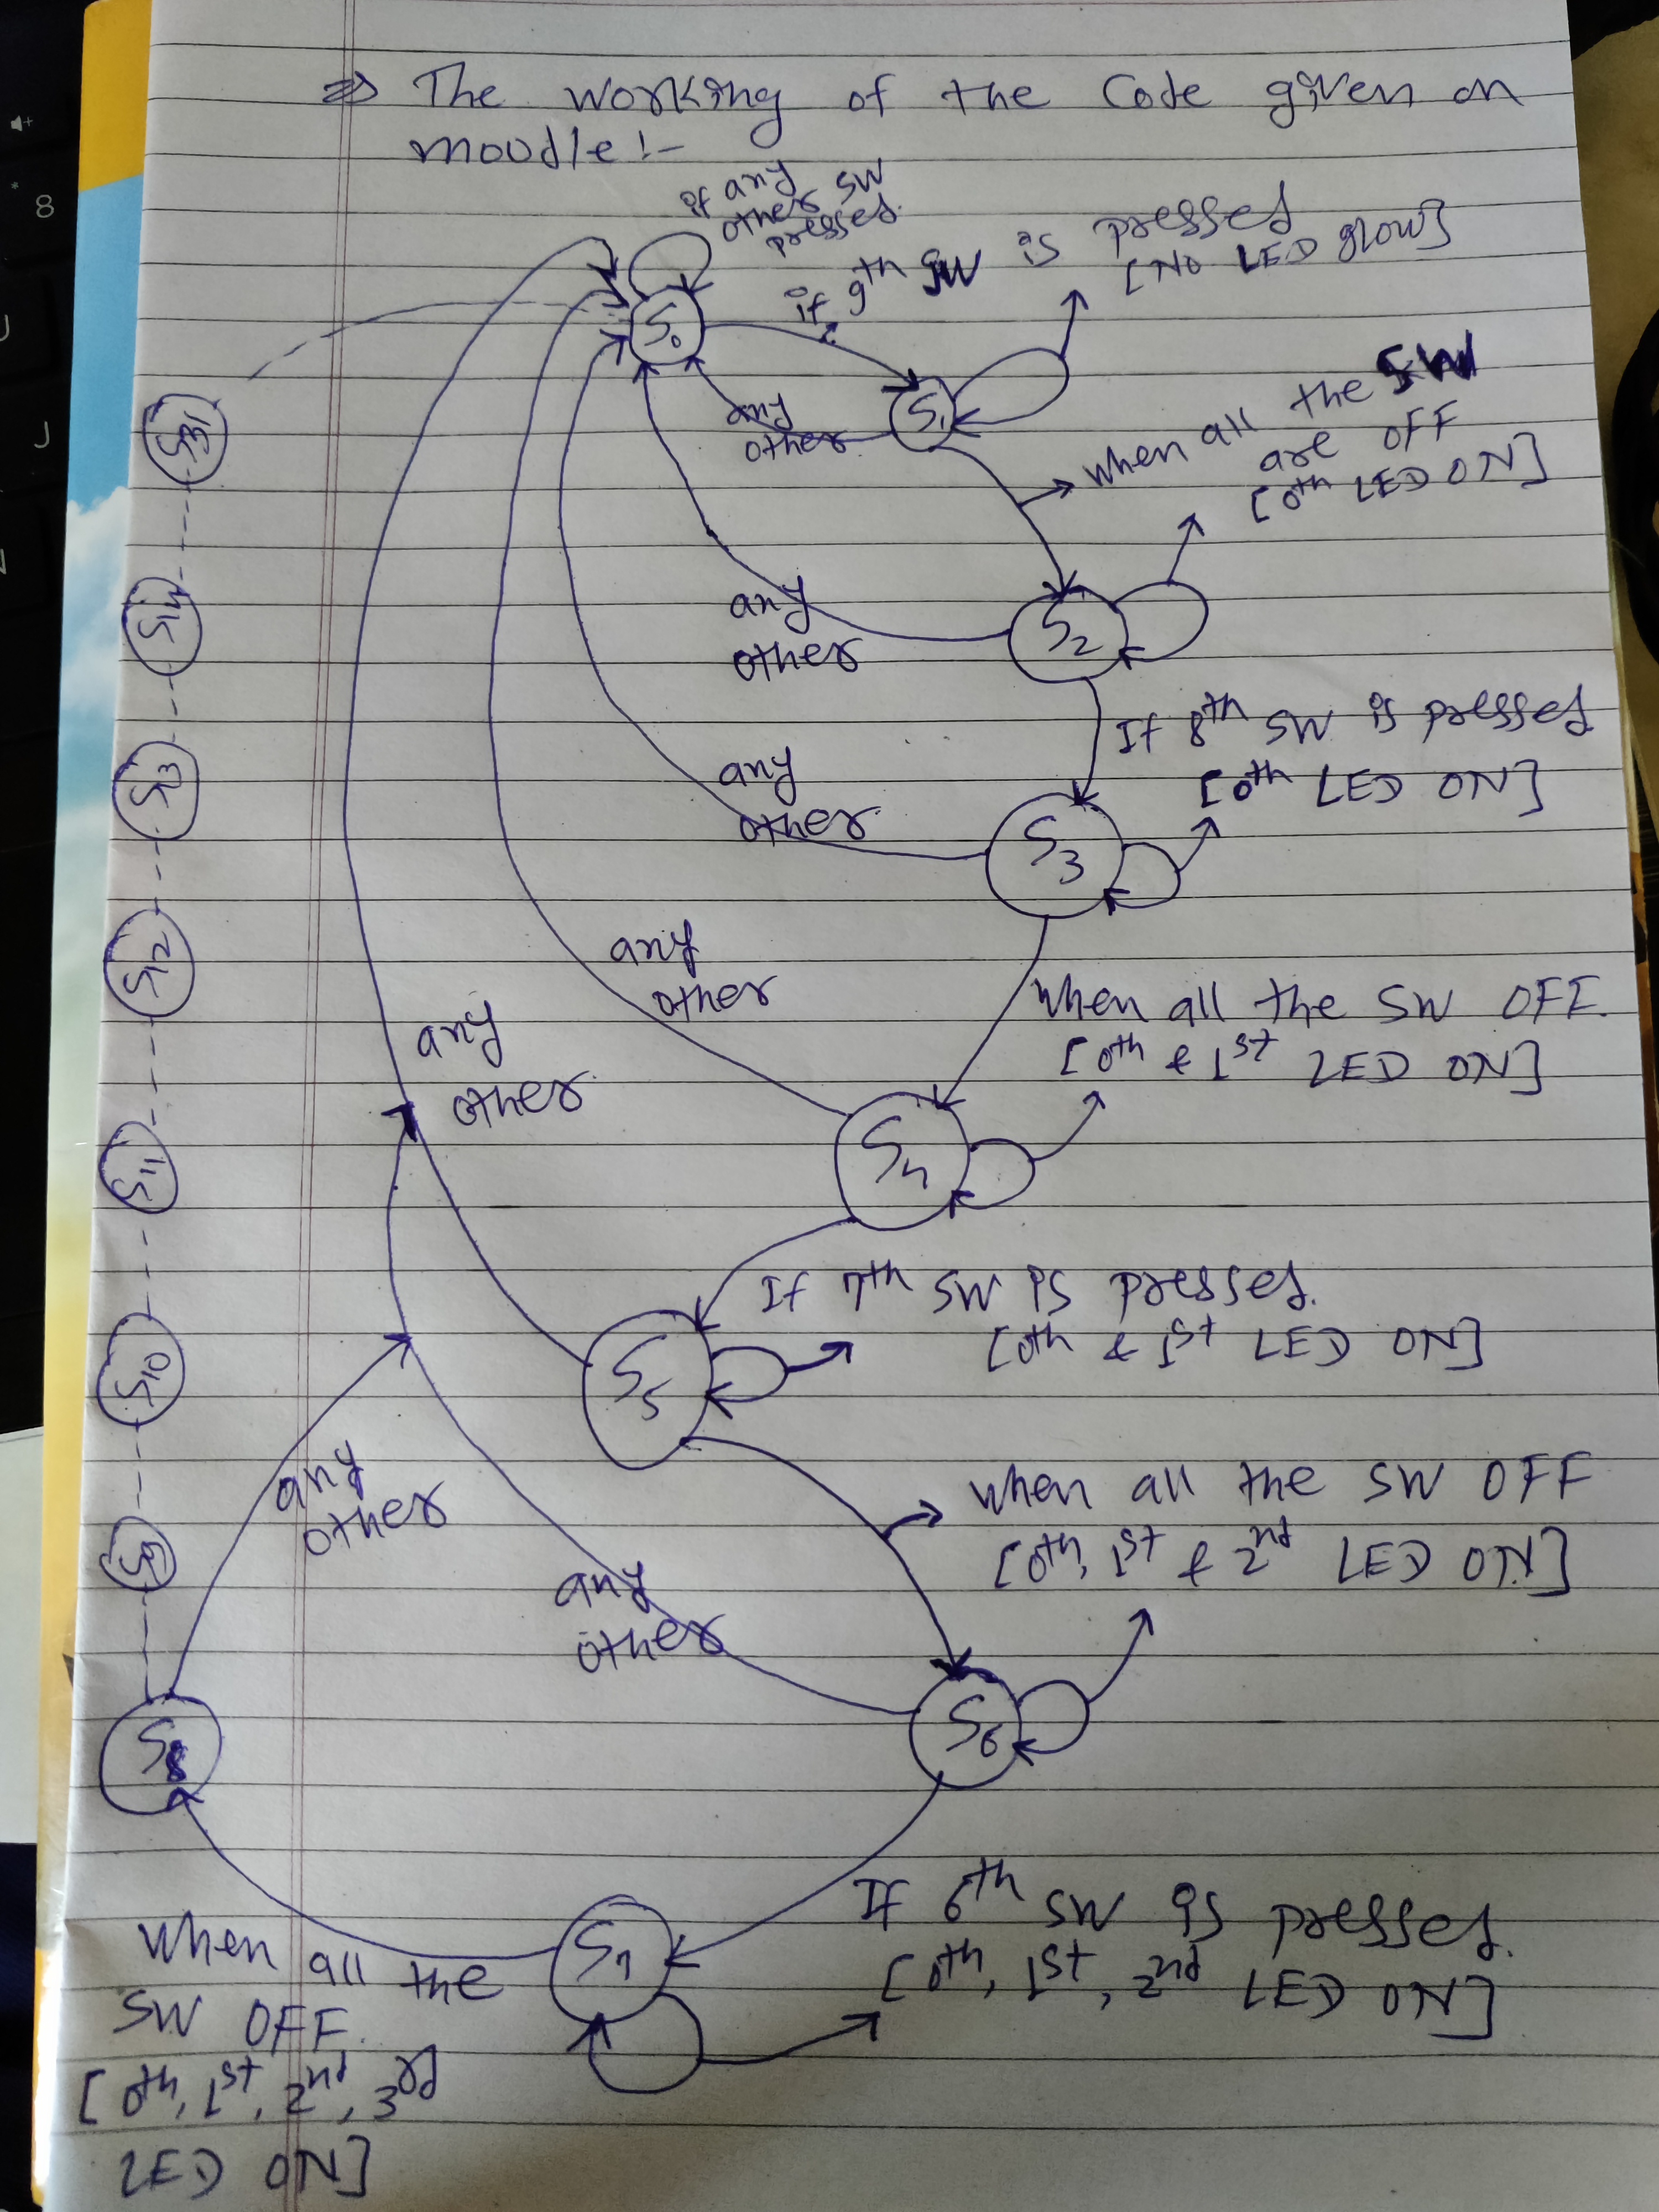 ⇒ The working of the Code given on
moodle :-
if any
other SW
pressed.
if 9th SW is pressed
[NO LED glow]
S0
S1
any
other
when all the SW
are OFF
[0th LED ON]
S31
S14
S2
any
other
If 8th SW is pressed
[0th LED ON]
S13
S3
any
other
S12
any
other
When all the SW OFF.
[0th & 1st LED ON]
any
other
S11
S4
If 7th SW is pressed.
[0th & 1st LED ON]
S10
S5
any
other
When all the SW OFF
[0th, 1st & 2nd LED ON]
S9
any
other
S6
S8
If 6th SW is pressed.
[0th, 1st, 2nd LED ON]
S7
When all the
SW OFF.
[0th, 1st, 2nd, 3rd
LED ON]